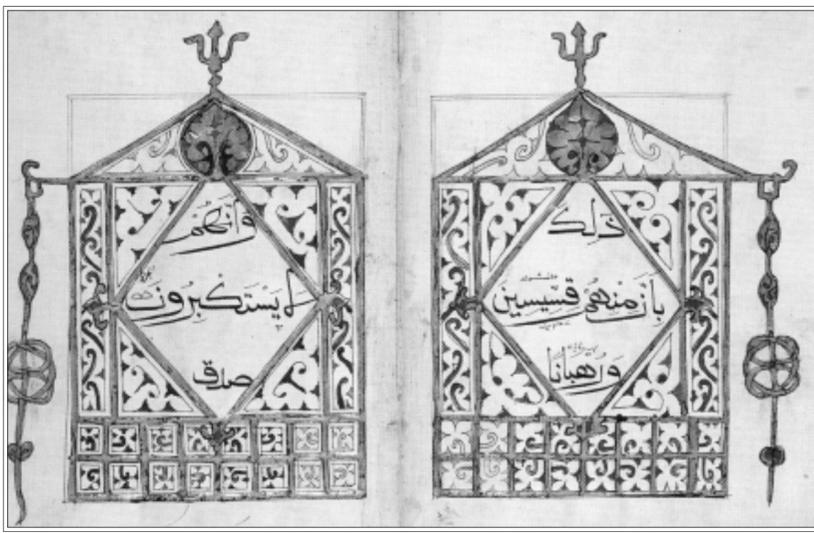 ذَلِكَ
بِأَنَّ مِنْهُمْ قِسِّيسِينَ
وَرُهْبَانًا
وَأَنَّهُمْ
لَا يَسْتَكْبِرُونَ
صدق